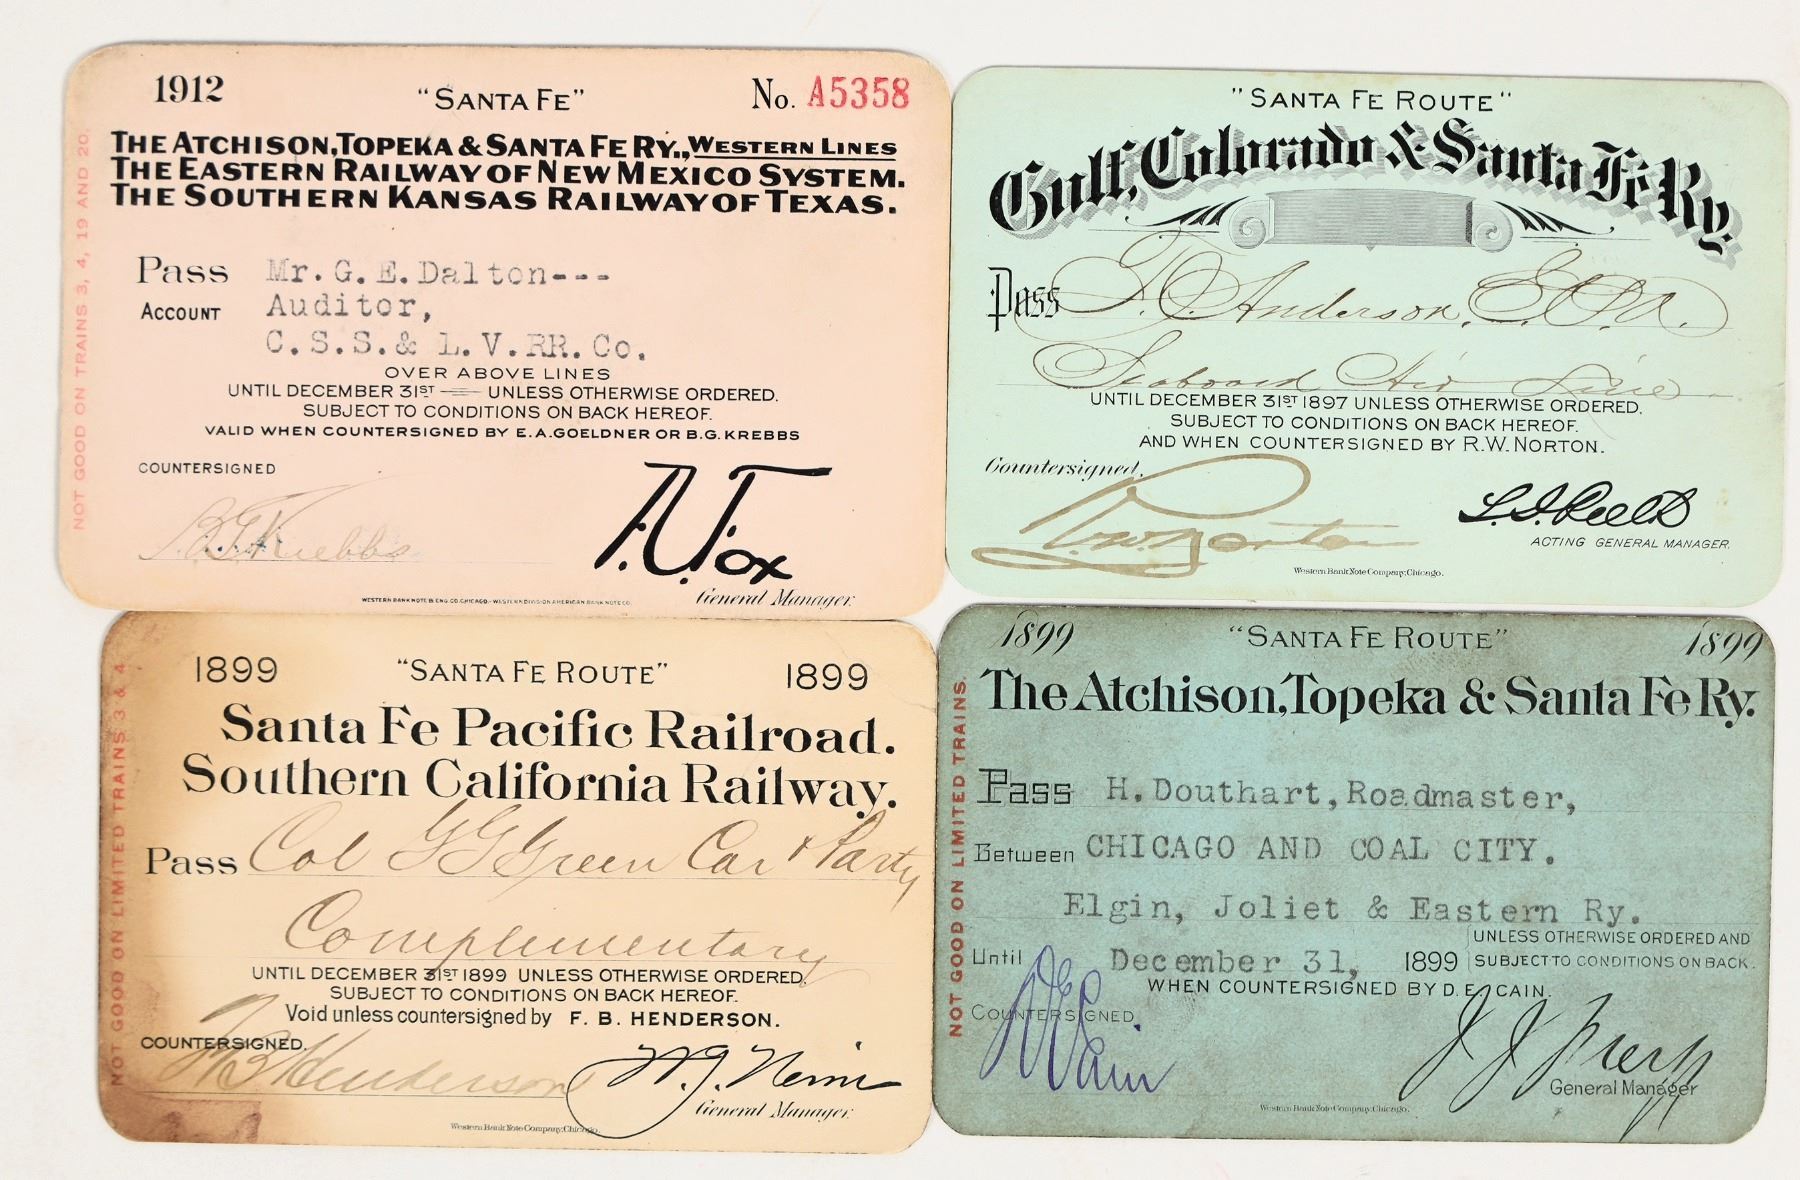 1912
"SANTA FE"
No. A5358
THE ATCHISON, TOPEKA & SANTA FE RY., WESTERN LINES
THE EASTERN RAILWAY OF NEW MEXICO SYSTEM.
THE SOUTHERN KANSAS RAILWAY OF TEXAS.
Pass Mr. G. E. Dalton---
ACCOUNT Auditor,
C. S. S. & L. V. RR. Co.
OVER ABOVE LINES
UNTIL DECEMBER 31ST UNLESS OTHERWISE ORDERED.
SUBJECT TO CONDITIONS ON BACK HEREOF.
VALID WHEN COUNTERSIGNED BY E.A. GOELDNER OR B.G. KREBBS
COUNTERSIGNED
B.G. Kruebbs
F. Fox
General Manager.
WESTERN BANK NOTE & ENG. CO. CHICAGO.- WESTERN DIVISION AMERICAN BANK NOTE CO.
NOT GOOD ON TRAINS 3, 4, 19 AND 20.
"SANTA FE ROUTE"
Gulf, Colorado & Santa Fe Ry.
Pass T. J. Anderson, G.P.A.
Seaboard Air Line
UNTIL DECEMBER 31ST 1897 UNLESS OTHERWISE ORDERED.
SUBJECT TO CONDITIONS ON BACK HEREOF.
AND WHEN COUNTERSIGNED BY R.W. NORTON.
Countersigned.
R.W. Norton
ACTING GENERAL MANAGER.
Western Bank Note Company, Chicago.
1899
"SANTA FE ROUTE"
1899
Santa Fe Pacific Railroad.
Southern California Railway.
Pass Col G G Green Car & Party
Complimentary
UNTIL DECEMBER 31ST 1899 UNLESS OTHERWISE ORDERED,
SUBJECT TO CONDITIONS ON BACK HEREOF.
Void unless countersigned by F. B. HENDERSON.
COUNTERSIGNED.
F B Henderson
General Manager.
Western Bank Note Company, Chicago.
NOT GOOD ON LIMITED TRAINS 3 & 4
1899
"SANTA FE ROUTE"
1899
The Atchison, Topeka & Santa Fe Ry.
Pass H. Douthart, Roadmaster,
Between CHICAGO AND COAL CITY.
Elgin, Joliet & Eastern Ry.
Until December 31, 1899 UNLESS OTHERWISE ORDERED AND
SUBJECT TO CONDITIONS ON BACK.
WHEN COUNTERSIGNED BY D. E. CAIN.
COUNTERSIGNED.
D E Cain
General Manager
Western Bank Note Company, Chicago.
NOT GOOD ON LIMITED TRAINS.